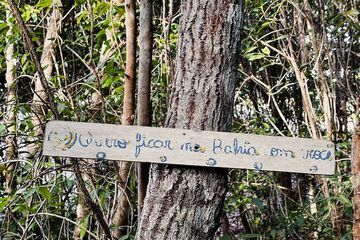 Quero ficar na Bahia com você